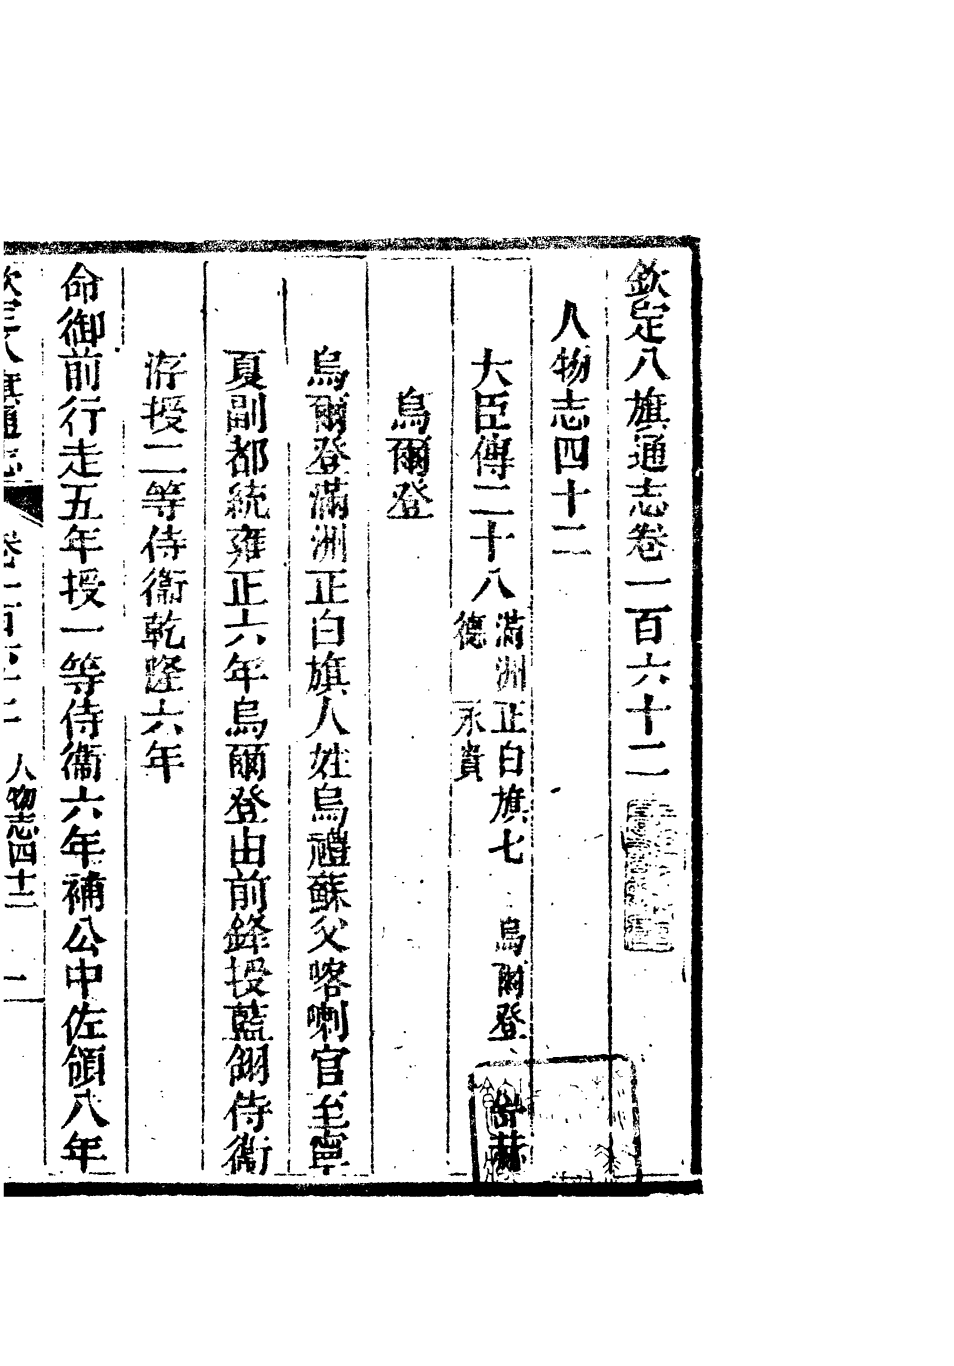 欽定八旗通志卷一百六十二
人物志四十二
大臣傳二十八 滿洲正白旗七 烏爾登 赫
德 永貴
烏爾登
烏爾登滿洲正白旗人姓烏禮蘇父喀喇官至寧
夏副都統雍正六年烏爾登由前鋒授藍翎侍衞
洊授二等侍衞乾隆六年
命御前行走五年授一等侍衞六年補公中佐領八年
人物志四十二 一